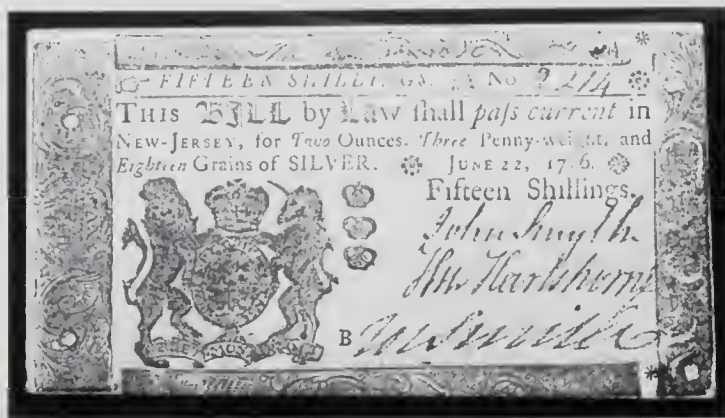 FIFTEEN SHILLINGS. No
THIS BILL by Law ſhall paſs current in
NEW-JERSEY, for Two Ounces. Three Penny-weight, and
Eighteen Grains of SILVER. JUNE 22, 17 6.
Fifteen Shillings.
John Smyth
Hartshorne
B Smith